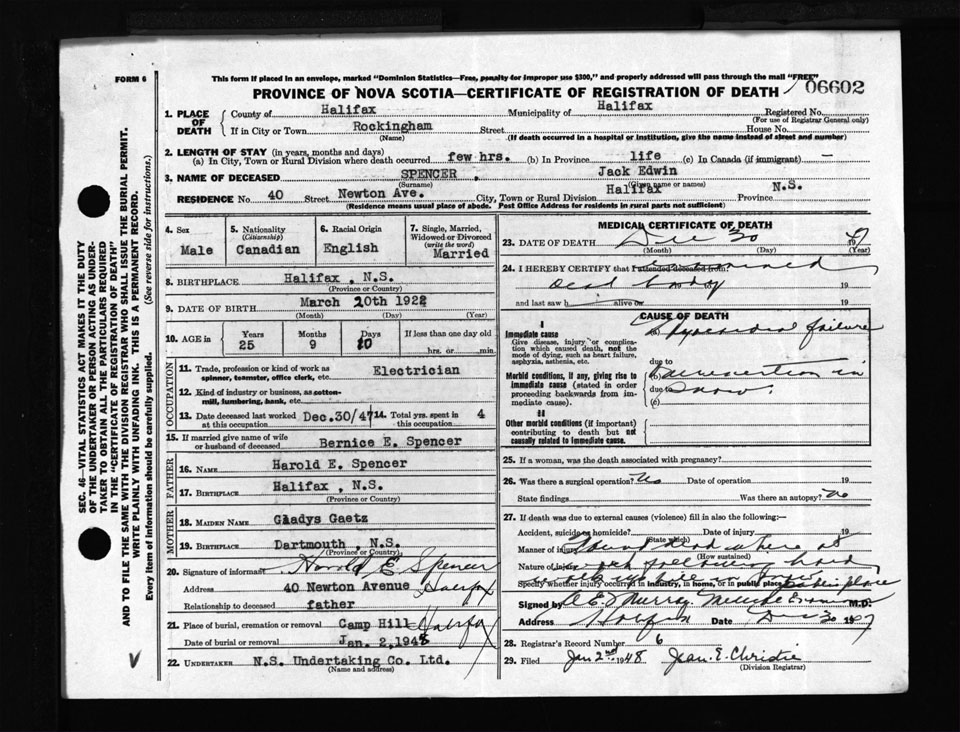 FORM 6
This form if placed in an envelope, marked "Dominion Statistics—Free, penalty for improper use $300," and properly addressed will pass through the mail "FREE"
PROVINCE OF NOVA SCOTIA—CERTIFICATE OF REGISTRATION OF DEATH
06602
1. PLACE OF DEATH
County of Halifax Municipality of Halifax Registered No.
(For use of Registrar General only)
If in City or Town Rockingham Street House No.
(Name) (If death occurred in a hospital or institution, give the name instead of street and number)
2. LENGTH OF STAY (in years, months and days)
(a) In City, Town or Rural Division where death occurred few hrs. (b) In Province life (c) In Canada (if immigrant) —
3. NAME OF DECEASED SPENCER, Jack Edwin
(Surname) (Given name or names)
RESIDENCE No. 40 Street Newton Ave. City, Town or Rural Division Halifax Province N.S.
(Residence means usual place of abode. Post Office Address for residents in rural parts not sufficient)
4. Sex Male
5. Nationality (Citizenship) Canadian
6. Racial Origin English
7. Single, Married, Widowed or Divorced (write the word) Married
8. BIRTHPLACE Halifax, N.S.
(Province or Country)
9. DATE OF BIRTH March 20th 1922
(Month) (Day) (Year)
10. AGE in Years 25 Months 9 Days 10 If less than one day old hrs. or min.
OCCUPATION
11. Trade, profession or kind of work as spinner, teamster, office clerk, etc. Electrician
12. Kind of industry or business, as cotton-mill, lumbering, bank, etc.
13. Date deceased last worked at this occupation Dec.30/47
14. Total yrs. spent in this occupation 4
15. If married give name of wife or husband of deceased Bernice E. Spencer
FATHER
16. NAME Harold E. Spencer
17. BIRTHPLACE Halifax, N.S.
(Province or Country)
MOTHER
18. MAIDEN NAME Gladys Gaetz
19. BIRTHPLACE Dartmouth, N.S.
(Province or Country)
20. Signature of informant Harold E. Spencer
Address 40 Newton Avenue Halifax
Relationship to deceased father
21. Place of burial, cremation or removal Camp Hill Halifax
Date of burial or removal Jan. 2, 1948
22. UNDERTAKER N.S. Undertaking Co. Ltd.
(Name and address)
MEDICAL CERTIFICATE OF DEATH
23. DATE OF DEATH Dec 30 1947
(Month) (Day) (Year)
24. I HEREBY CERTIFY that I attended deceased from: examined
dead body 19
and last saw h alive on 19
CAUSE OF DEATH
I
Immediate cause
Give disease, injury or complication which caused death, not the mode of dying, such as heart failure, asphyxia, asthenia, etc.
(a) Myocardial failure
due to
Morbid conditions, if any, giving rise to immediate cause (stated in order proceeding backwards from immediate cause).
(b) overexertion in
due to snow.
(c)
II
Other morbid conditions (if important) contributing to death but not causally related to immediate cause.
25. If a woman, was the death associated with pregnancy?
26. Was there a surgical operation? No Date of operation 19
State findings Was there an autopsy? No
27. If death was due to external causes (violence) fill in also the following:—
Accident, suicide or homicide? Date of injury 19
(State which)
Manner of injury Found dead where at
(How sustained)
Nature of injury work following hard
Specify whether injury occurred in industry, in home, or in public place
Signed by D E Murray Medical Examiner M.D.
Address Halifax Date Dec 30 1947
28. Registrar's Record Number 6
29. Filed Jan 2nd 1948 Jean. E. Christie
(Division Registrar)
SEC. 46—VITAL STATISTICS ACT MAKES IT THE DUTY
OF THE UNDERTAKER OR PERSON ACTING AS UNDERTAKER TO OBTAIN ALL THE PARTICULARS REQUIRED
IN THE "CERTIFICATE OF REGISTRATION OF DEATH"
AND TO FILE THE SAME WITH THE DIVISION REGISTRAR WHO SHALL ISSUE THE BURIAL PERMIT.
WRITE PLAINLY WITH UNFADING INK. THIS IS A PERMANENT RECORD.
Every item of information should be carefully supplied. (See reverse side for instructions.)